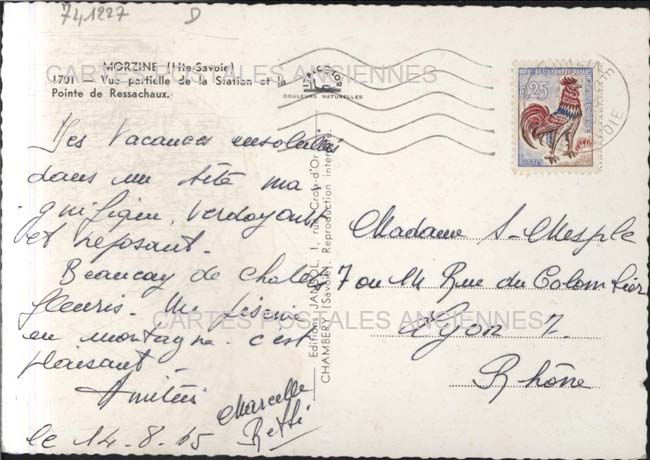 741227 D
MORZINE (Hte-Savoie)
1701 - Vue partielle de la Station et la
Pointe de Ressachaux.
COULEURS NATURELLES
CARTES POSTALES ANCIENNES
0,25
POSTES
Des Vacances ensoleillées
dans un site ma
gnifique, verdoyant
et reposant.
Beaucoup de chalets
fleuris. Une piscine
en montagne c'est
plaisant.
Amitiés
Marcelle
le 14.8.65
Editions JANSOL, 1, rue Croix-d'Or
CHAMBERY (Savoie). Reproduction interdite.
Madame S. Mesple
7 ou M Rue du Colombier
Lyon 7.
Rhône
CARTES POSTALES ANCIENNES